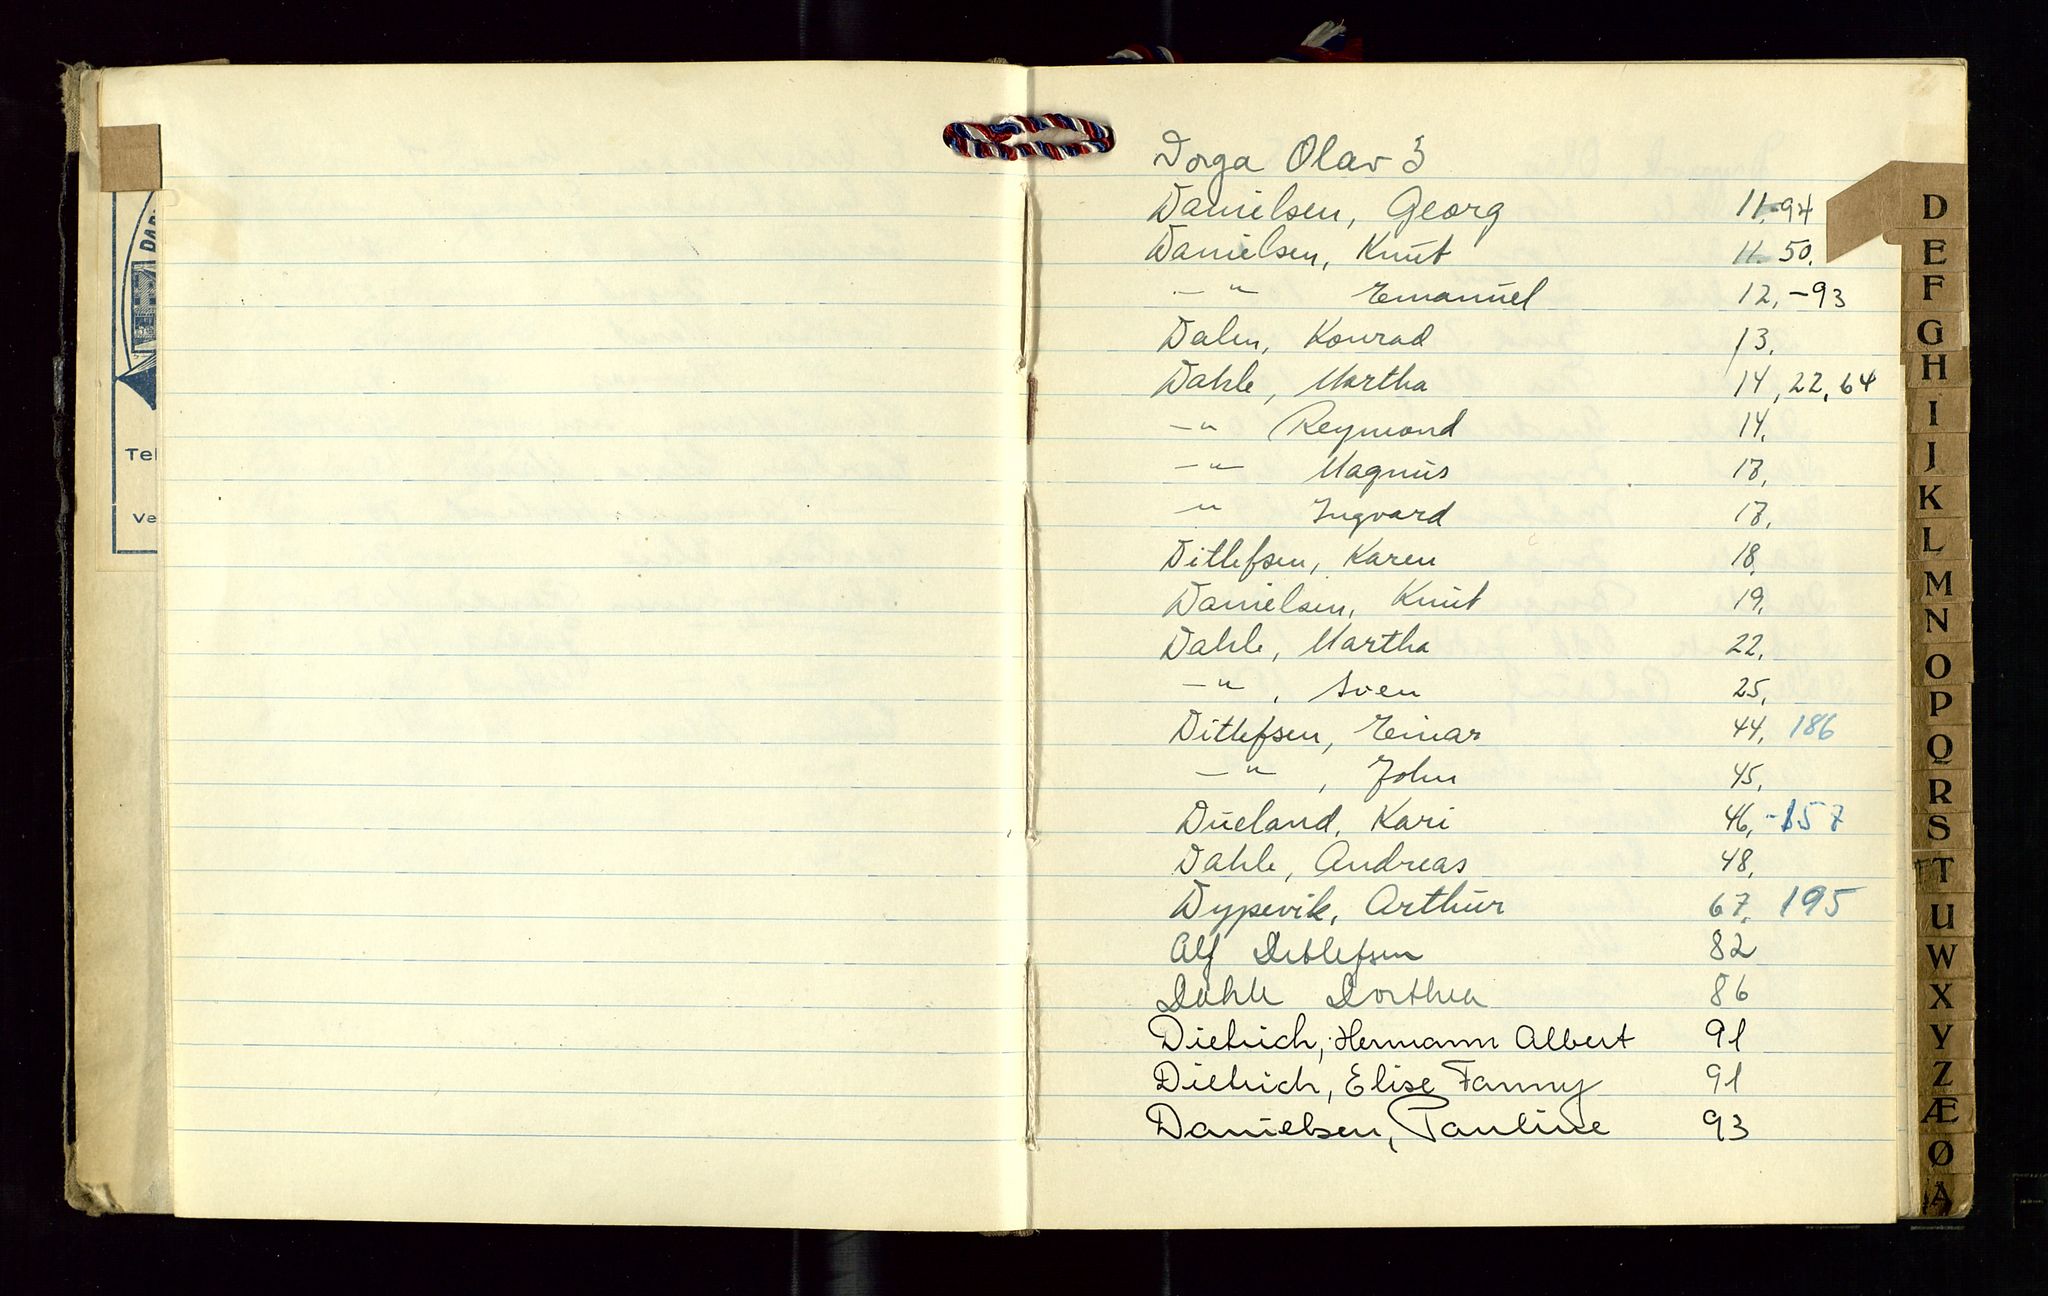 Dorga Olav 3
Danielsen, Georg 11,-94
Danielsen, Knut 11. 50.
— " Emanuel 12, -93
Dalen, Konrad 13.
Dahle, Martha 14, 22, 64
— " Reymond 14.
— " Magnus 17.
" Ingvard 17.
Ditlefsen, Karen 18.
Danielsen, Knut 19.
Dahle, Martha 22.
— " , Sven 25.
Ditlefsen, Einar 44, 186
— " , John 45.
Dueland, Kari 46, -157
Dahle, Andreas 48.
Dypevik, Arthur 67. 195
Alf Ditlefsen 82
Dahle Dorthea 86
Dietrich, Hermann Albert 91
Dietrich, Elise Fanny 91
Danielsen, Pauline 93
Tel
Ve
D
E
F
G
H
I
J
K
L
M
N
O
P
Q
R
S
T
U
W
X
Y
Z
Æ
Ø
Å